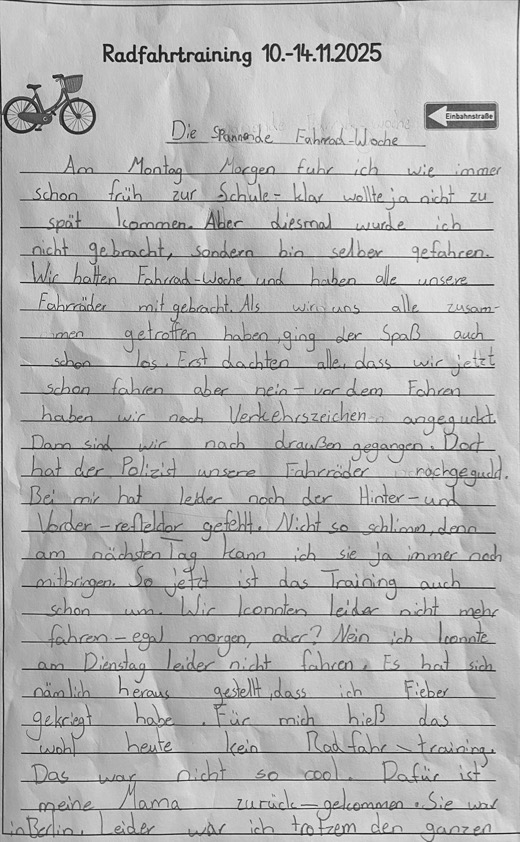 Radfahrtraining 10.-14.11.2025
Einbahnstraße
Die Spannende Fahrrad-Woche
Am Montag Morgen fuhr ich wie immer
schon früh zur Schule - klar wollte ja nicht zu
spät kommen. Aber diesmal wurde ich
nicht gebracht, sondern bin selber gefahren.
Wir hatten Fahrrad-Woche und haben alle unsere
Fahrräder mitgebracht. Als wir uns alle zusam-
men getroffen haben, ging der Spaß auch
schon los. Erst dachten alle, dass wir jetzt
schon fahren aber nein - vor dem Fahren
haben wir noch Verkehrszeichen angeguckt.
Dann sind wir nach draußen gegangen. Dort
hat der Polizist unsere Fahrräder nachgeguckt.
Bei mir hat leider noch der Hinter- und
Vorder-reflektor gefehlt. Nicht so schlimm, denn
am nächsten Tag kann ich sie ja immer noch
mitbringen. So jetzt ist das Training auch
schon um. Wir konnten leider nicht mehr
fahren - egal morgen, oder? Nein ich konnte
am Dienstag leider nicht fahren. Es hat sich
nämlich heraus gestellt, dass ich Fieber
gekriegt habe. Für mich hieß das
wohl heute kein Radfahr-training.
Das war nicht so cool. Dafür ist
meine Mama zurück-gekommen. Sie war
in Berlin. Leider war ich trotzem den ganzen